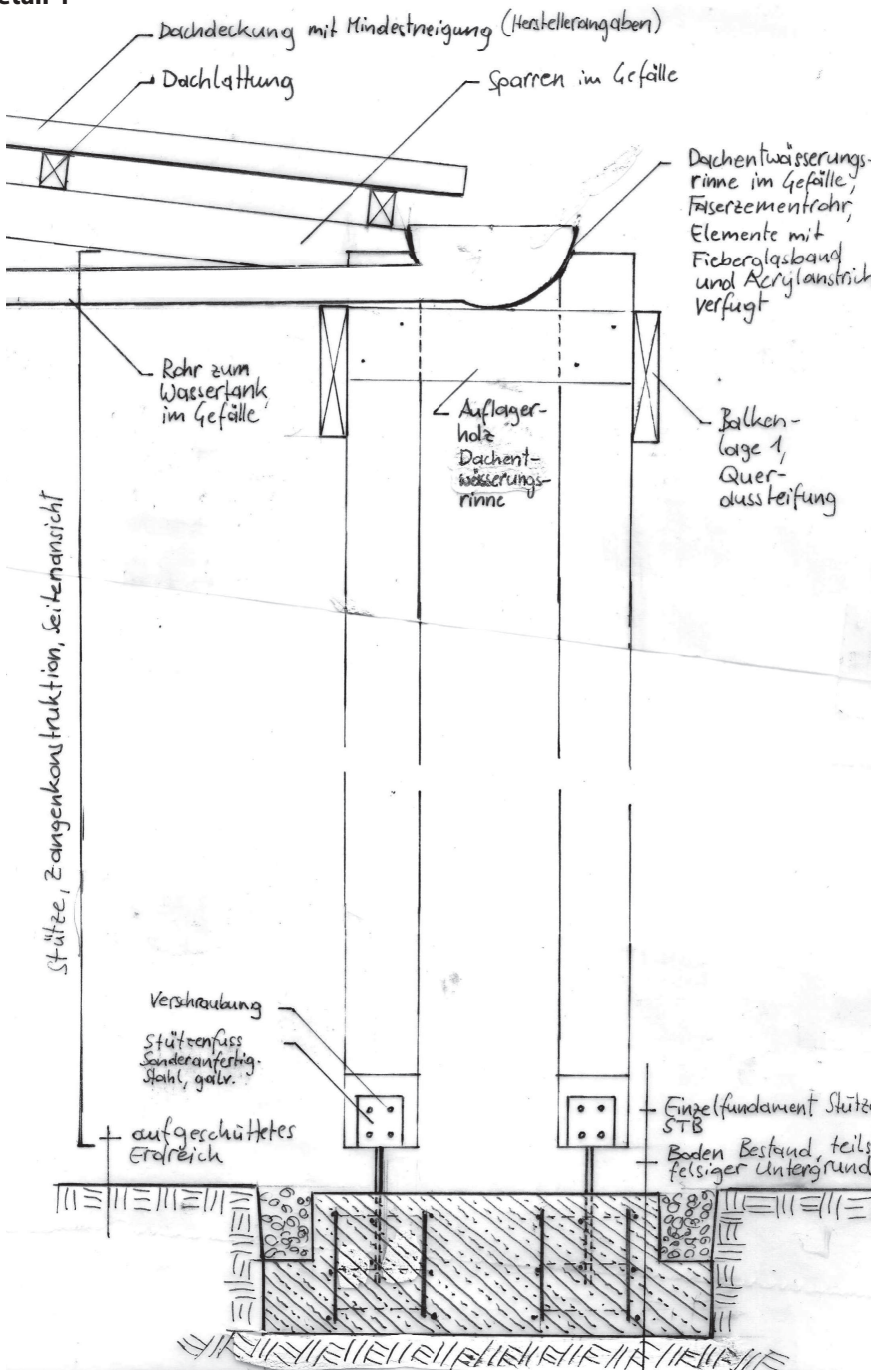 Dachdeckung mit Mindestneigung (Herstellerangaben)
Dachlattung
Sparren im Gefälle
Dachentwässerungs-
rinne im Gefälle,
Faserzementrohr,
Elemente mit
Fieberglasband
und Acrylanstrich
verfugt
Rohr zum
Wassertank
im Gefälle
Auflager-
holz
Dachent-
wässerungs-
rinne
Balken-
lage 1,
Quer-
aussteifung
Stütze, Zangenkonstruktion, Seitenansicht
Verschraubung
Stützenfuss
Sonderanfertig.
Stahl, galv.
aufgeschüttetes
Erdreich
Einzelfundament Stütze
STB
Boden Bestand, teils
felsiger Untergrund